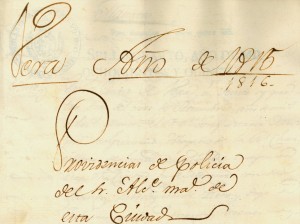 Vera Año de 1816
1816.
Providencias de Policia
del Sr. Alce. mar. de
esta Ciudad